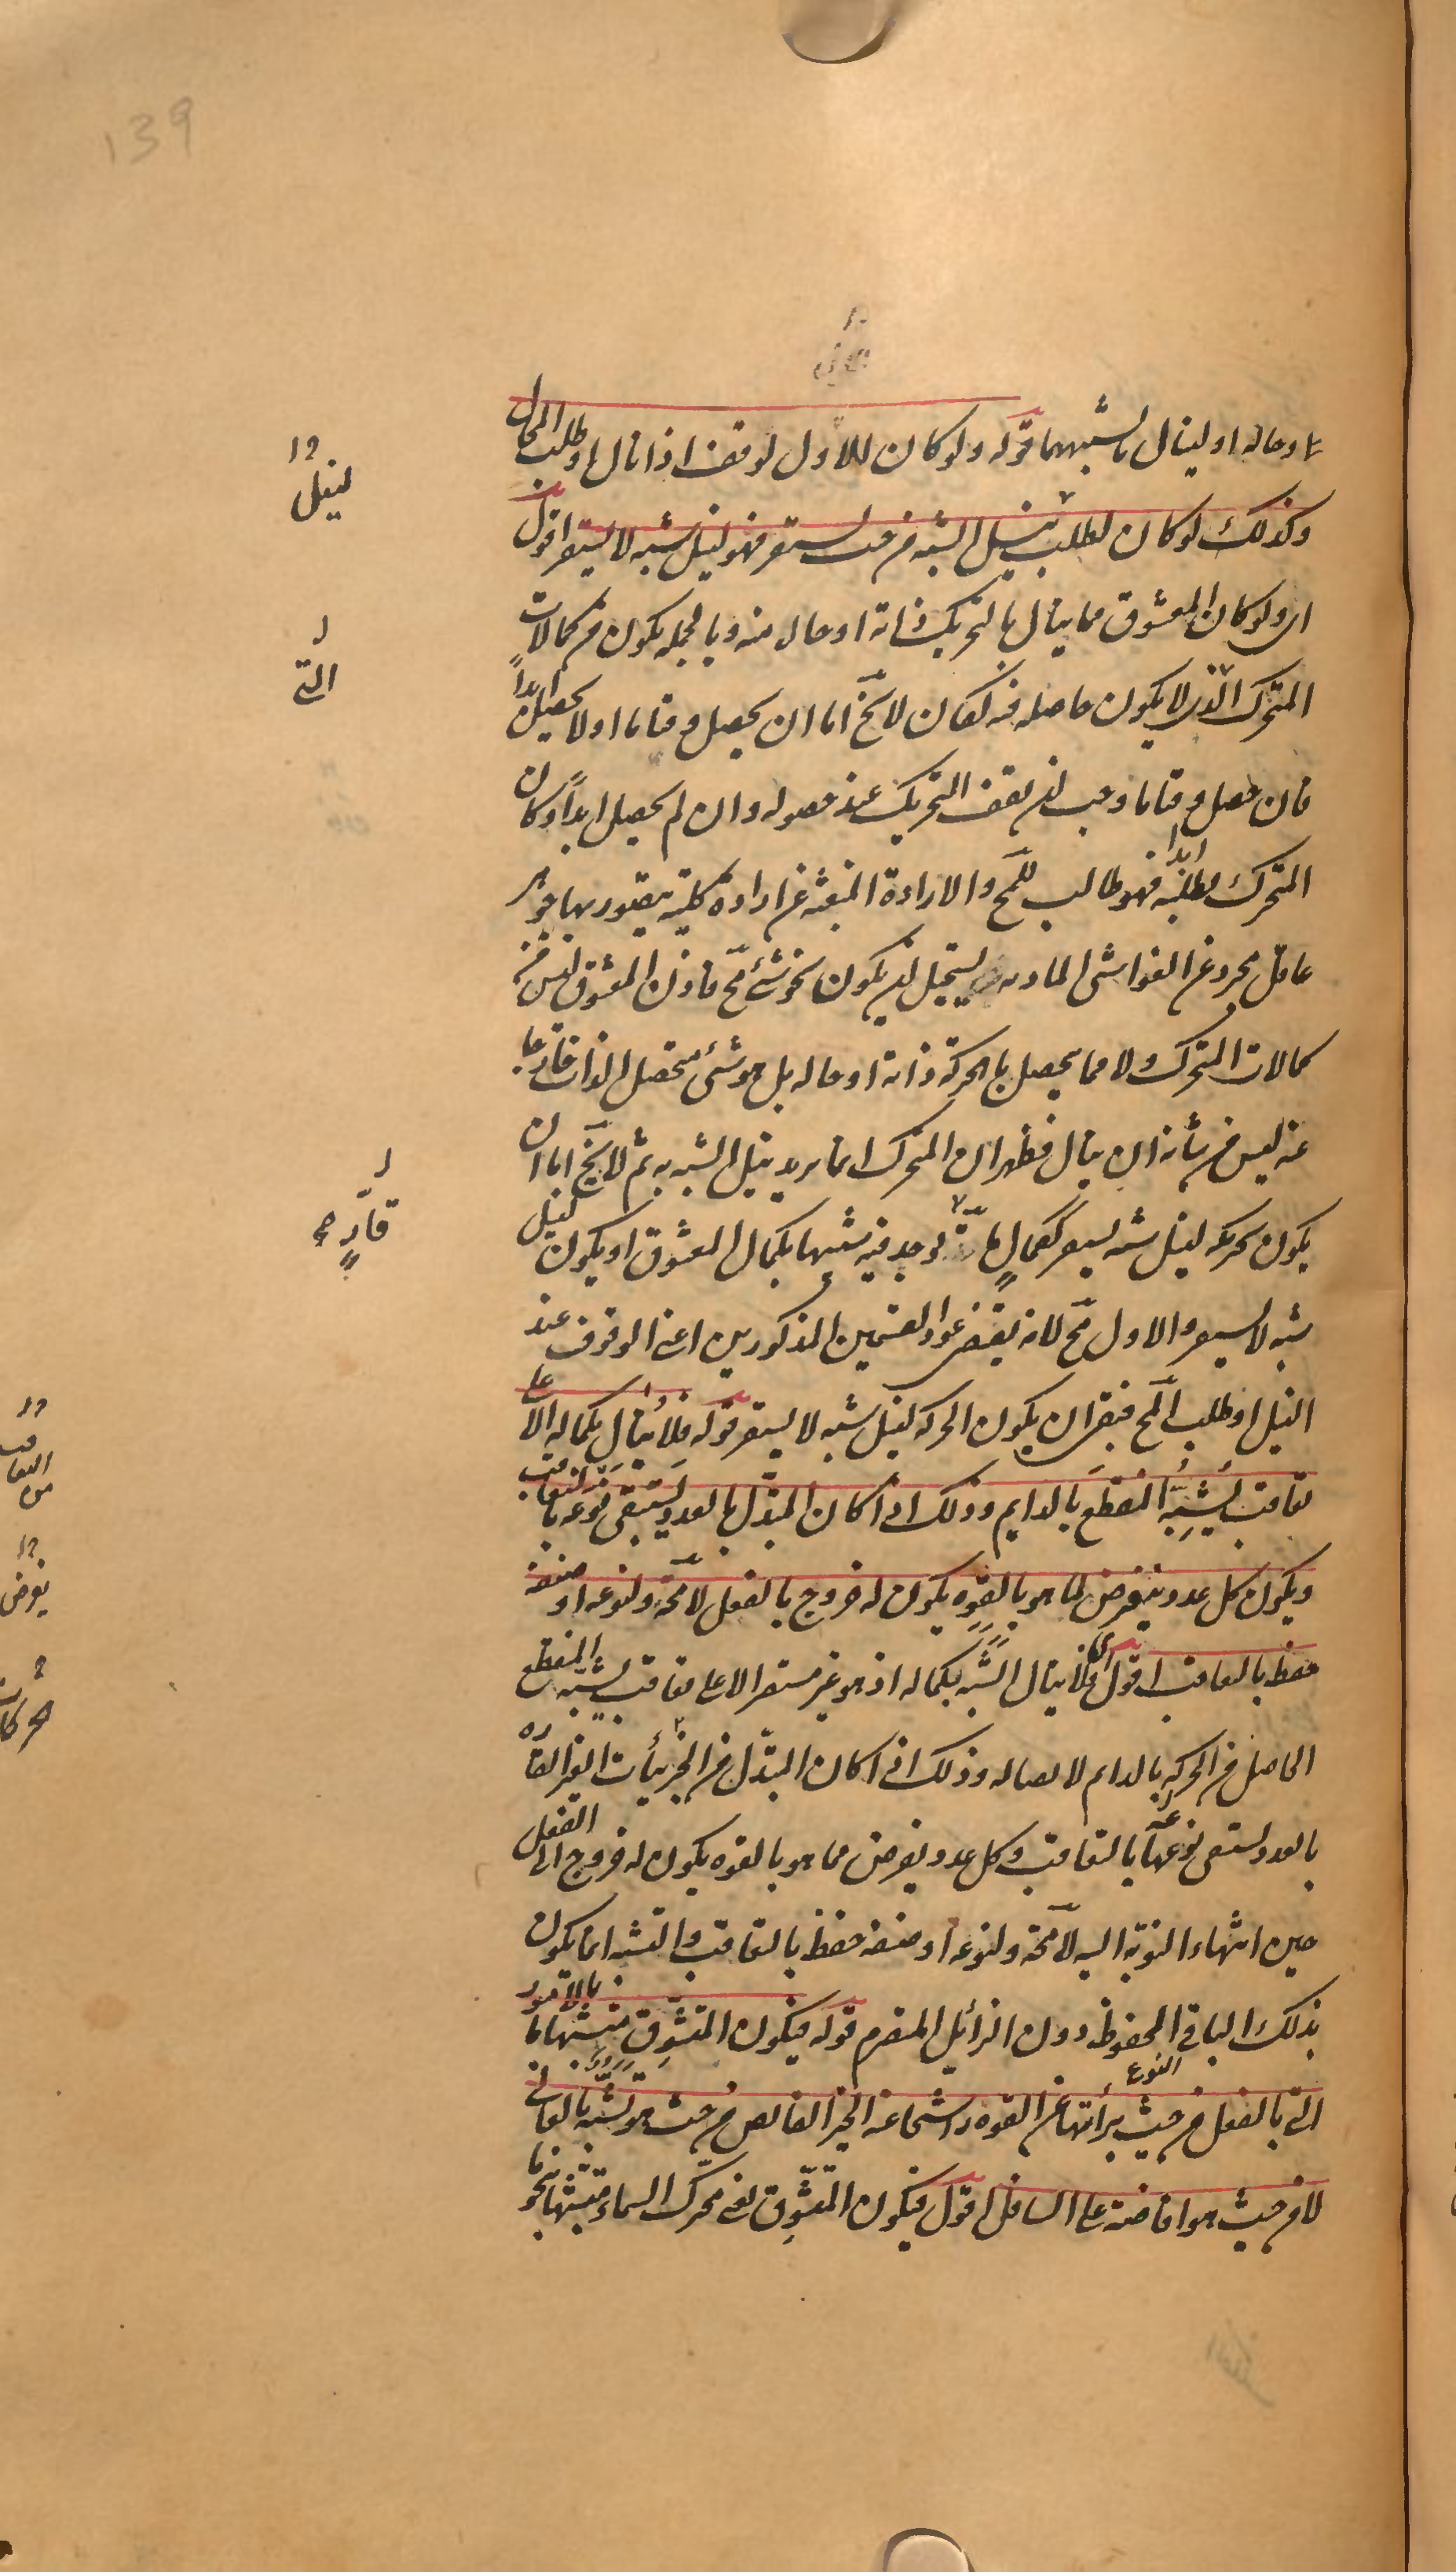 139
او حاله او لينال ما يشبههما قوله ولو كان للاول لوقف اذا نال او طلب المحال
وكذلك لو كان لطلب نيل الشبه من حيث يستقر فهو لنيل شبه لا يستقر اقول
اى ولو كان المعشوق مما ينال بالتحريك ذاته او حال منه وبالجمله يكون من كمالات
المتحرك الّذى لا يكون حاصله فيه لكان لا يخ اما ان يحصل وقتا ما او لا يحصل ابداً
فان حصل وقتا ما وجب ان يقف التحريك عند حصوله وان لم يحصل ابداً وكان
المتحرك يطلبه ابدا فهو طالب للمح والارادة المنبعثه عن ارادة كليّة يتصور بها جوهر
عاقل مجرد عن الغواشى الماديه يستحيل ان يكون نحو شئ مح فاذن المعشوق ليس من
كمالات المتحرك ولا مما يحصل بالحركة ذاته او حاله بل هو شئ متحصل الذات خارجا
عنه ليس من شأنه ان ينال فظهر ان المتحرك انما يريد نيل الشبه به ثم لا يخ اما ان
يكون تحريكه لنيل شبه يستقر ككمالٍ ما يوجد فيه شبيها بكمال المعشوق او يكون لنيل
شبه لا يستقر والاول مح لانه يقتضى عود القسمين المذكورين اعنى الوقوف عند
النيل او طلب المح فبقى ان يكون الحركه لنيل شبه لا يستقر قوله فلا ينال بكماله الا على
تعاقب يشبه المنقطع بالدايم وذلك اذا كان المتبدّل بالعدد يستبقى نوعه بالتعاقب
ويكون كل عدد يفرض لما هو بالقوه يكون له خروج بالفعل لا مح ولنوعه او صنفه
حفظ بالتعاقب اقول اى فلا ينال الشبه بكماله اذ هو غير مستقر الا على تعاقب يشبه المنقطع
الحاصل من الحركه بالدايم لاتصاله وذلك اذا كان المتبدّل من الجزئيات الغير القارّه
بالعدد يستبقى نوعها بالتعاقب وكل عدد يفرض مما هو بالقوه يكون له خروج الى الفعل
حين انتهاء النوبة اليه لا محة ولنوعه او صنفه حفظ بالتعاقب والتشبه انما يكون
بذلك الباقى المحفوظ دون الزائيل المتصرم قوله فيكون المتشوّق متشبها ما بالامور
التى بالفعل من حيث برأتها عن القوه راشحا عنه الخير الفايض من حيث هو تشبّه بالعالى
لا من حيث هو افاضة على السافل اقول فيكون المتشوّق يعنى محرّك السماء متشبها نحوا ما
النوع
لنيل
التى
قارٍّ
يفرض